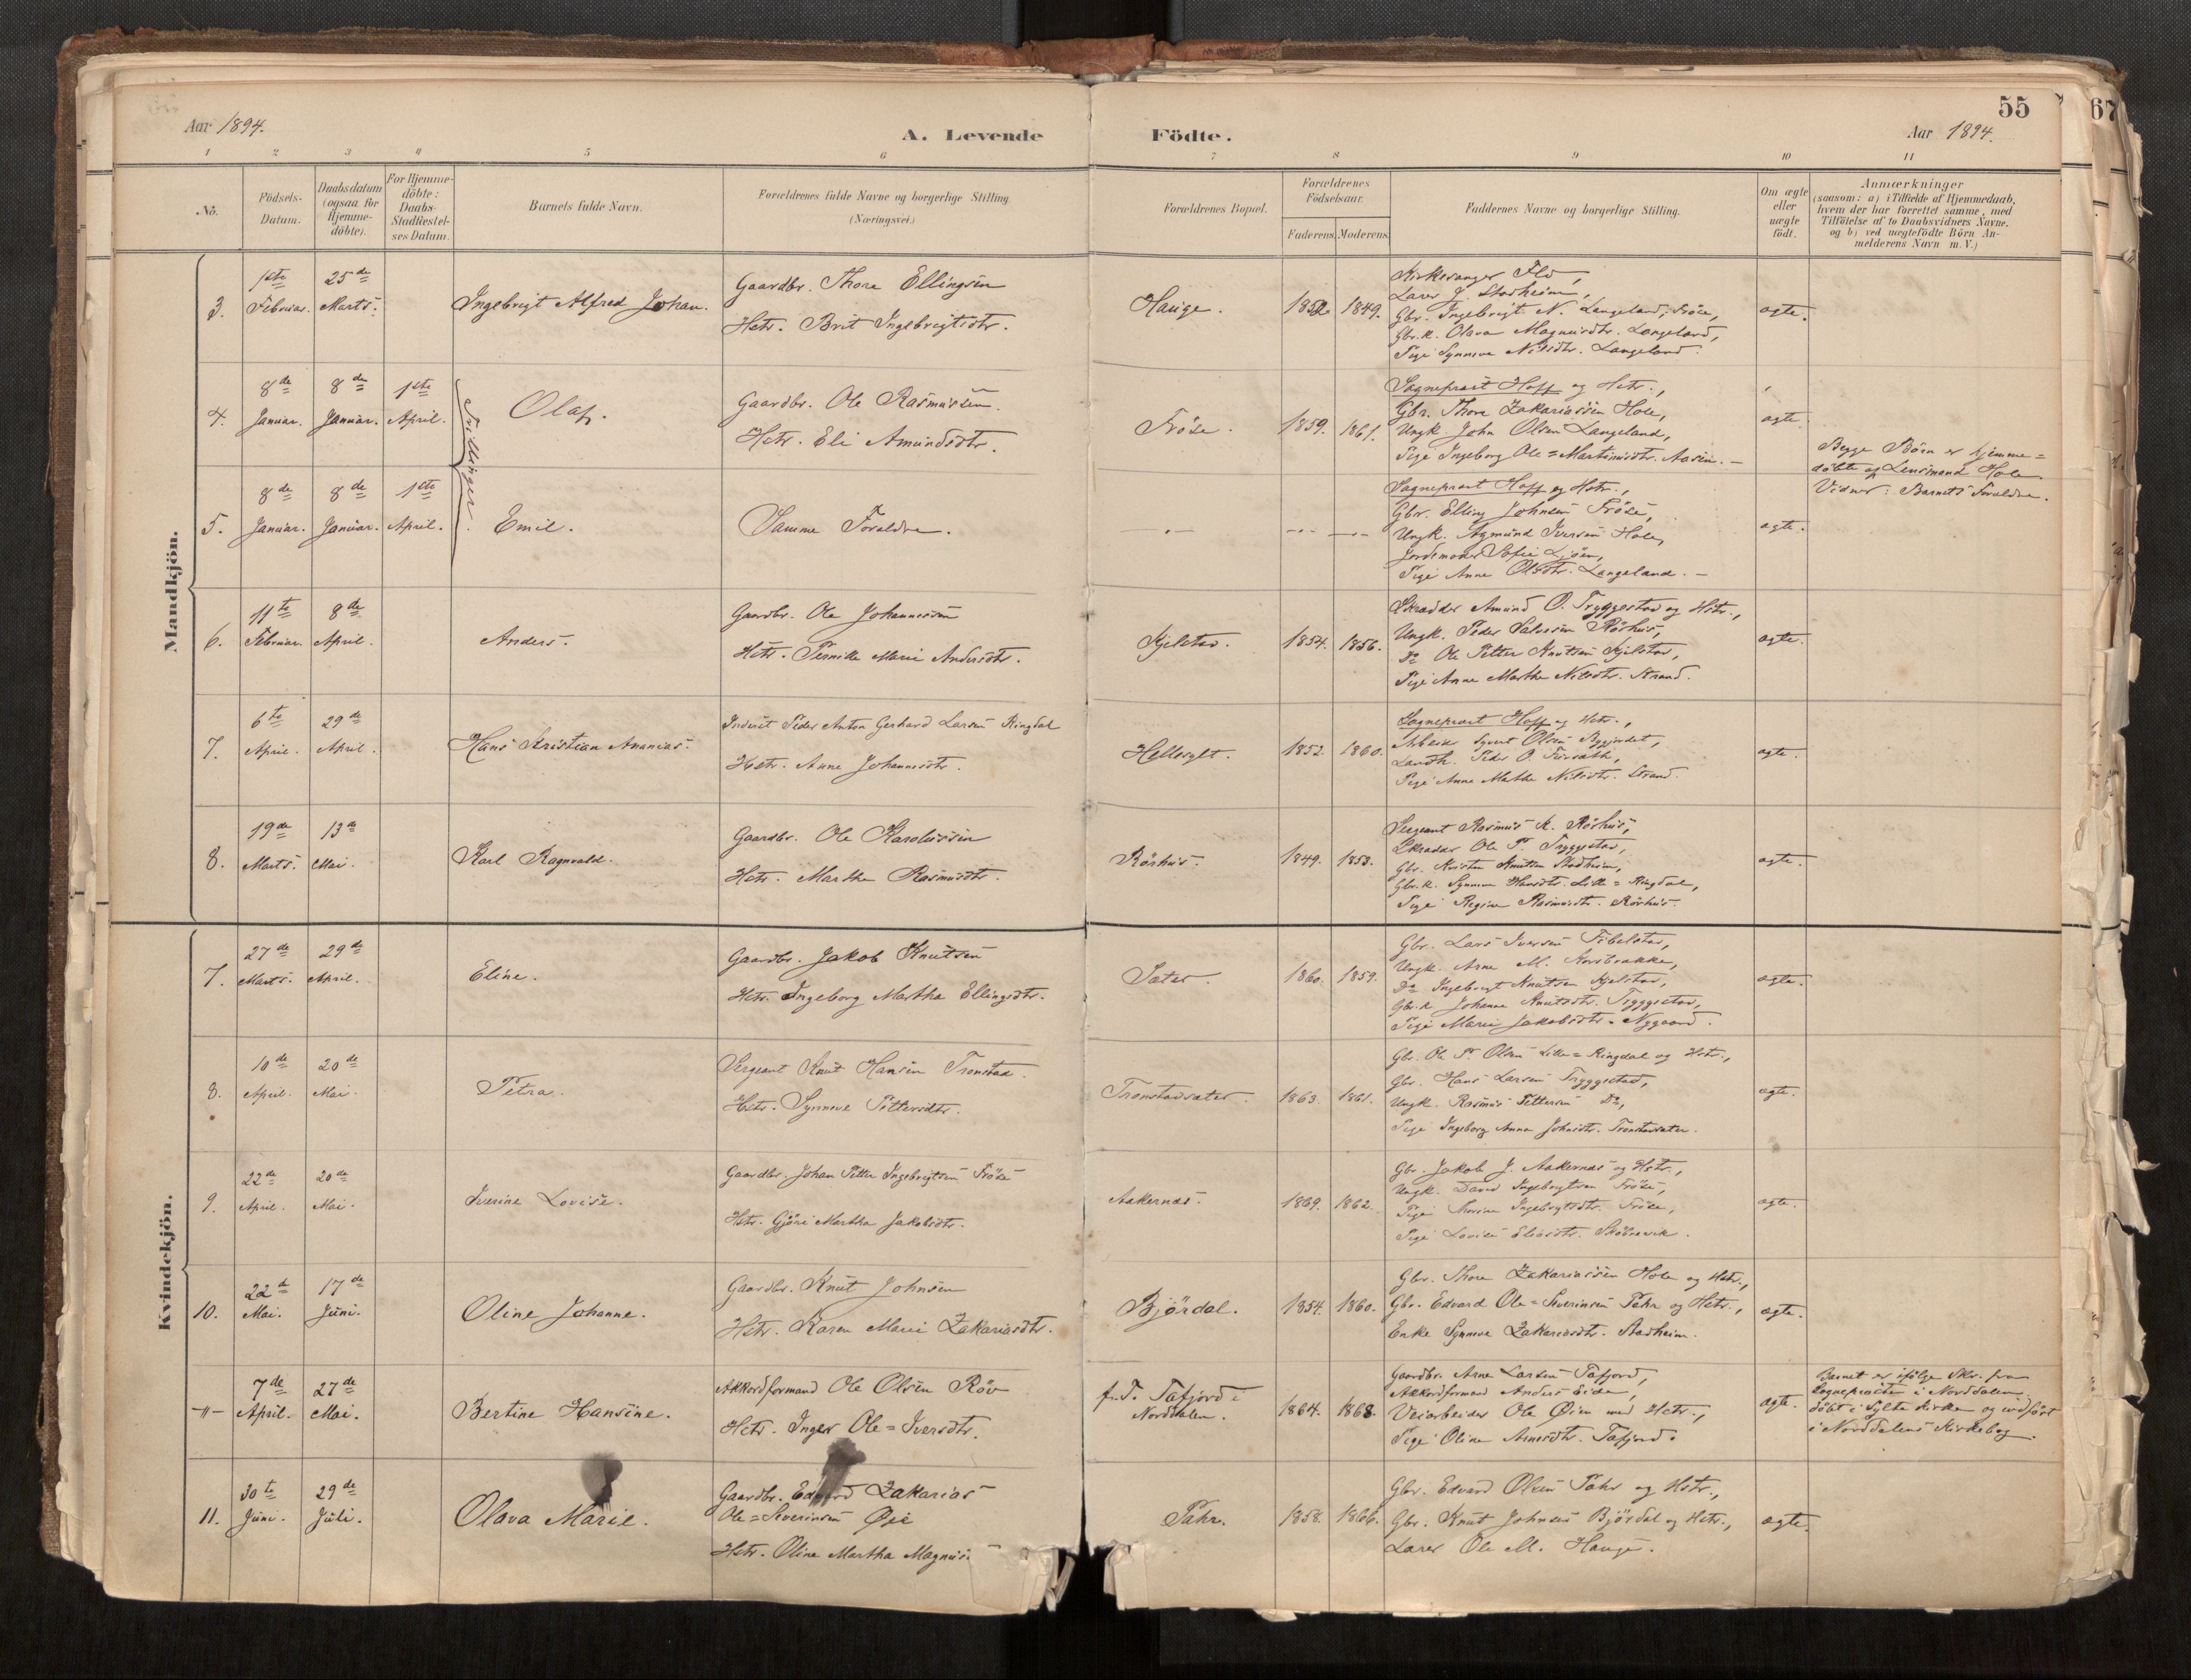 Aar 1894.
A. Levende
Födte.
Aar 1894.
55
67
1 2 3 4 5 6 7 8 9 10 11
No.
Födsels-Datum.
Daabsdatum (ogsaa for Hjemme-döbte).
For Hjemme-döbte: Daabs-Stadfæstel-ses Datum.
Barnets fulde Navn.
Forældrenes fulde Navne og borgerlige Stilling (Næringsvei.)
Forældrenes Bopæl.
Forældrenes Födselsaar.
Faderens. Moderens.
Faddernes Navne og borgerlige Stilling.
Om ægte eller uægte födt.
Anmærkninger
(saasom: a) i Tilfælde af Hjemmedaab,
hvem der har forrettet samme, med
Tilföielse af to Daabsvidners Navne,
og b) ved uægtefödte Börn An-
melderens Navn m. V.)
Mandkjön.
3. 1ste Februar. 25de Marts. Ingebrigt Alfred Johan.
Gaardbr. Thore Ellingsen
Hstr. Brit Ingebrigtsdtr.
Hauge. 1852 1849.
Kirkesanger Flo,
Lærer J. Stadheim,
Gbr. Ingebrigt N. Langeland, Fröse,
Gbr.k. Olava Magnusdtr. Langeland,
Pige Synneve Nilsdtr. Langeland.
ægte.
4. 8de Januar. 8de Januar. 1ste April. Olaf.
Tvillinger.
Gaardbr. Ole Rasmussen.
Hstr. Eli Amundsdtr.
Fröse. 1859. 1861.
Sogneprest Hoff og Hstr.,
Gbr. Thore Zakariassen Hole,
Ungk. John Olsen Langeland,
Pige Ingeborg Ole=Martinusdtr. Aasen. —
ægte.
Begge Börn er hjemme=
döbte af Lensmand Hole.
Vidner: Barnets Forældre.
5. 8de Januar. 8de Januar. 1ste April. Emil.
Samme Forældre.
Sogneprest Hoff og Hstr.,
Gbr. Elling Johnsen Fröse,
Ungk. Agmund Iversen Hole,
Jordemoder Sofie Ljöen,
Pige Anne Olsdtr. Langeland. —
ægte.
6. 11te Februar. 8de April. Anders.
Gaardbr. Ole Johannessen
Hstr. Pernille Marie Andersdtr.
Kjelstad. 1854. 1856.
Skrædder Amund O. Tryggestad og Hstr.,
Ungk. Peder Salvesen Rörhus,
Do Ole Petter Knutsen Kjelstad,
Pige Anne Marthe Nilsdtr. Strand.
ægte.
7. 6te April. 29de April. Hans Kristian Ananias.
Inderst Peder Anton Gerhard Larsen Ringdal
Hstr. Anne Johannesdtr.
Hellesylt. 1852. 1860.
Sogneprest Hoff og Hstr.,
Arbeider Syvert Olsen Byggjordet,
Landh. Peder O. Furseth,
Pige Anne Marthe Nilsdtr. Strand.
ægte.
8. 19de Marts. 13de Mai. Karl Ragnvald.
Gaardbr. Ole Karolussen
Hstr. Marthe Rasmusdtr.
Rörhus. 1849. 1853.
Sergeant Rasmus K. Rörhus,
Skrædder Ole P. Tryggestad,
Gbr. Kristen Knutsen Stadheim,
Gbr.k. Synneve Hansdtr. Lille=Ringdal,
Pige Regine Rasmusdtr. Rörhus.
ægte.
Kvindekjön.
7. 27de Marts. 29de April. Eline.
Gaardbr. Jakob Knutsen
Hstr. Ingeborg Marthe Ellingsdtr.
Sæter. 1860. 1859.
Gbr. Lars Iversen Fibelstad,
Ungk. Arne M. Korsbrække,
Do Ingebrigt Knutsen Kjelstad,
Gbr.k Johanne Knutsdtr. Tryggestad,
Pige Marie Jakobsdtr. Nygaard.
ægte.
8. 10de April. 20de Mai. Petra.
Sergeant Knut Hansen Tronstad.
Hstr. Synneve Pettersdtr.
Tronstadsæter. 1863. 1861.
Gbr. Ole P. Olsen Lille=Ringdal og Hstr.,
Gbr. Hans Larsen Tryggestad,
Ungk. Rasmus Pettersen Do,
Pige Ingeborg Anna Johnsdtr. Tronstadsæter.
ægte.
9. 22de April. 20de Mai. Iverine Lovise.
Gaardbr. Johan Petter Ingebrigtsen Fröse
Hstr. Gjöri Martha Jakobsdtr.
Aakernæs. 1869. 1862.
Gbr. Jakob J. Aakernæs og Hstr.,
Ungk. David Ingebrigtsen Fröse,
Pige Ingebrigtsdtr. Fröse,
Pige Lovise Eliasdtr.
ægte.
10. 22de Mai. 17de Juni. Oline Johanne.
Gaardbr. Knut Johnsen
Hstr. Karen Marie Zakariasdtr.
Björdal. 1854. 1860.
Gbr. Thore Zakariassen Hole og Hstr.,
Gbr. Edvard Ole=Severinsen Tahr og Hstr.,
Enke Synneve Zakariasdtr. Stadheim.
ægte.
-"- 7de April. 27de Mai. Bertine Hansine.
Akkordformand Ole Olsen Röv
Hstr. Inger Ole=Iversdtr.
f.T. Tafjord i
Norddalen. 1864. 1868.
Gaardbr. Arne Larsen Tafjord,
Akkordformand Anders Eide,
Veiarbeider Ole Øien med Hstr.,
Pige Oline Arnesdtr. Tafjord.
ægte.
Barnet er ifölge Skr. fra
Sognepresten i Norddalen
döbt i Sylte Kirke og indfört
i Norddalens Kirkebog.
11. 30te Juni. 29de Juli. Olava Marie.
Gaardbr. Edvard Zakarias
Ole=Severinsen Øie
Hstr. Oline Martha Magnus
Tahr. 1858. 1866.
Gbr. Edvard Olsen Tahr og Hstr.,
Gbr. Knut Johnsen Björdal og Hstr.,
Lærer Ole M. Hauge.
ægte.